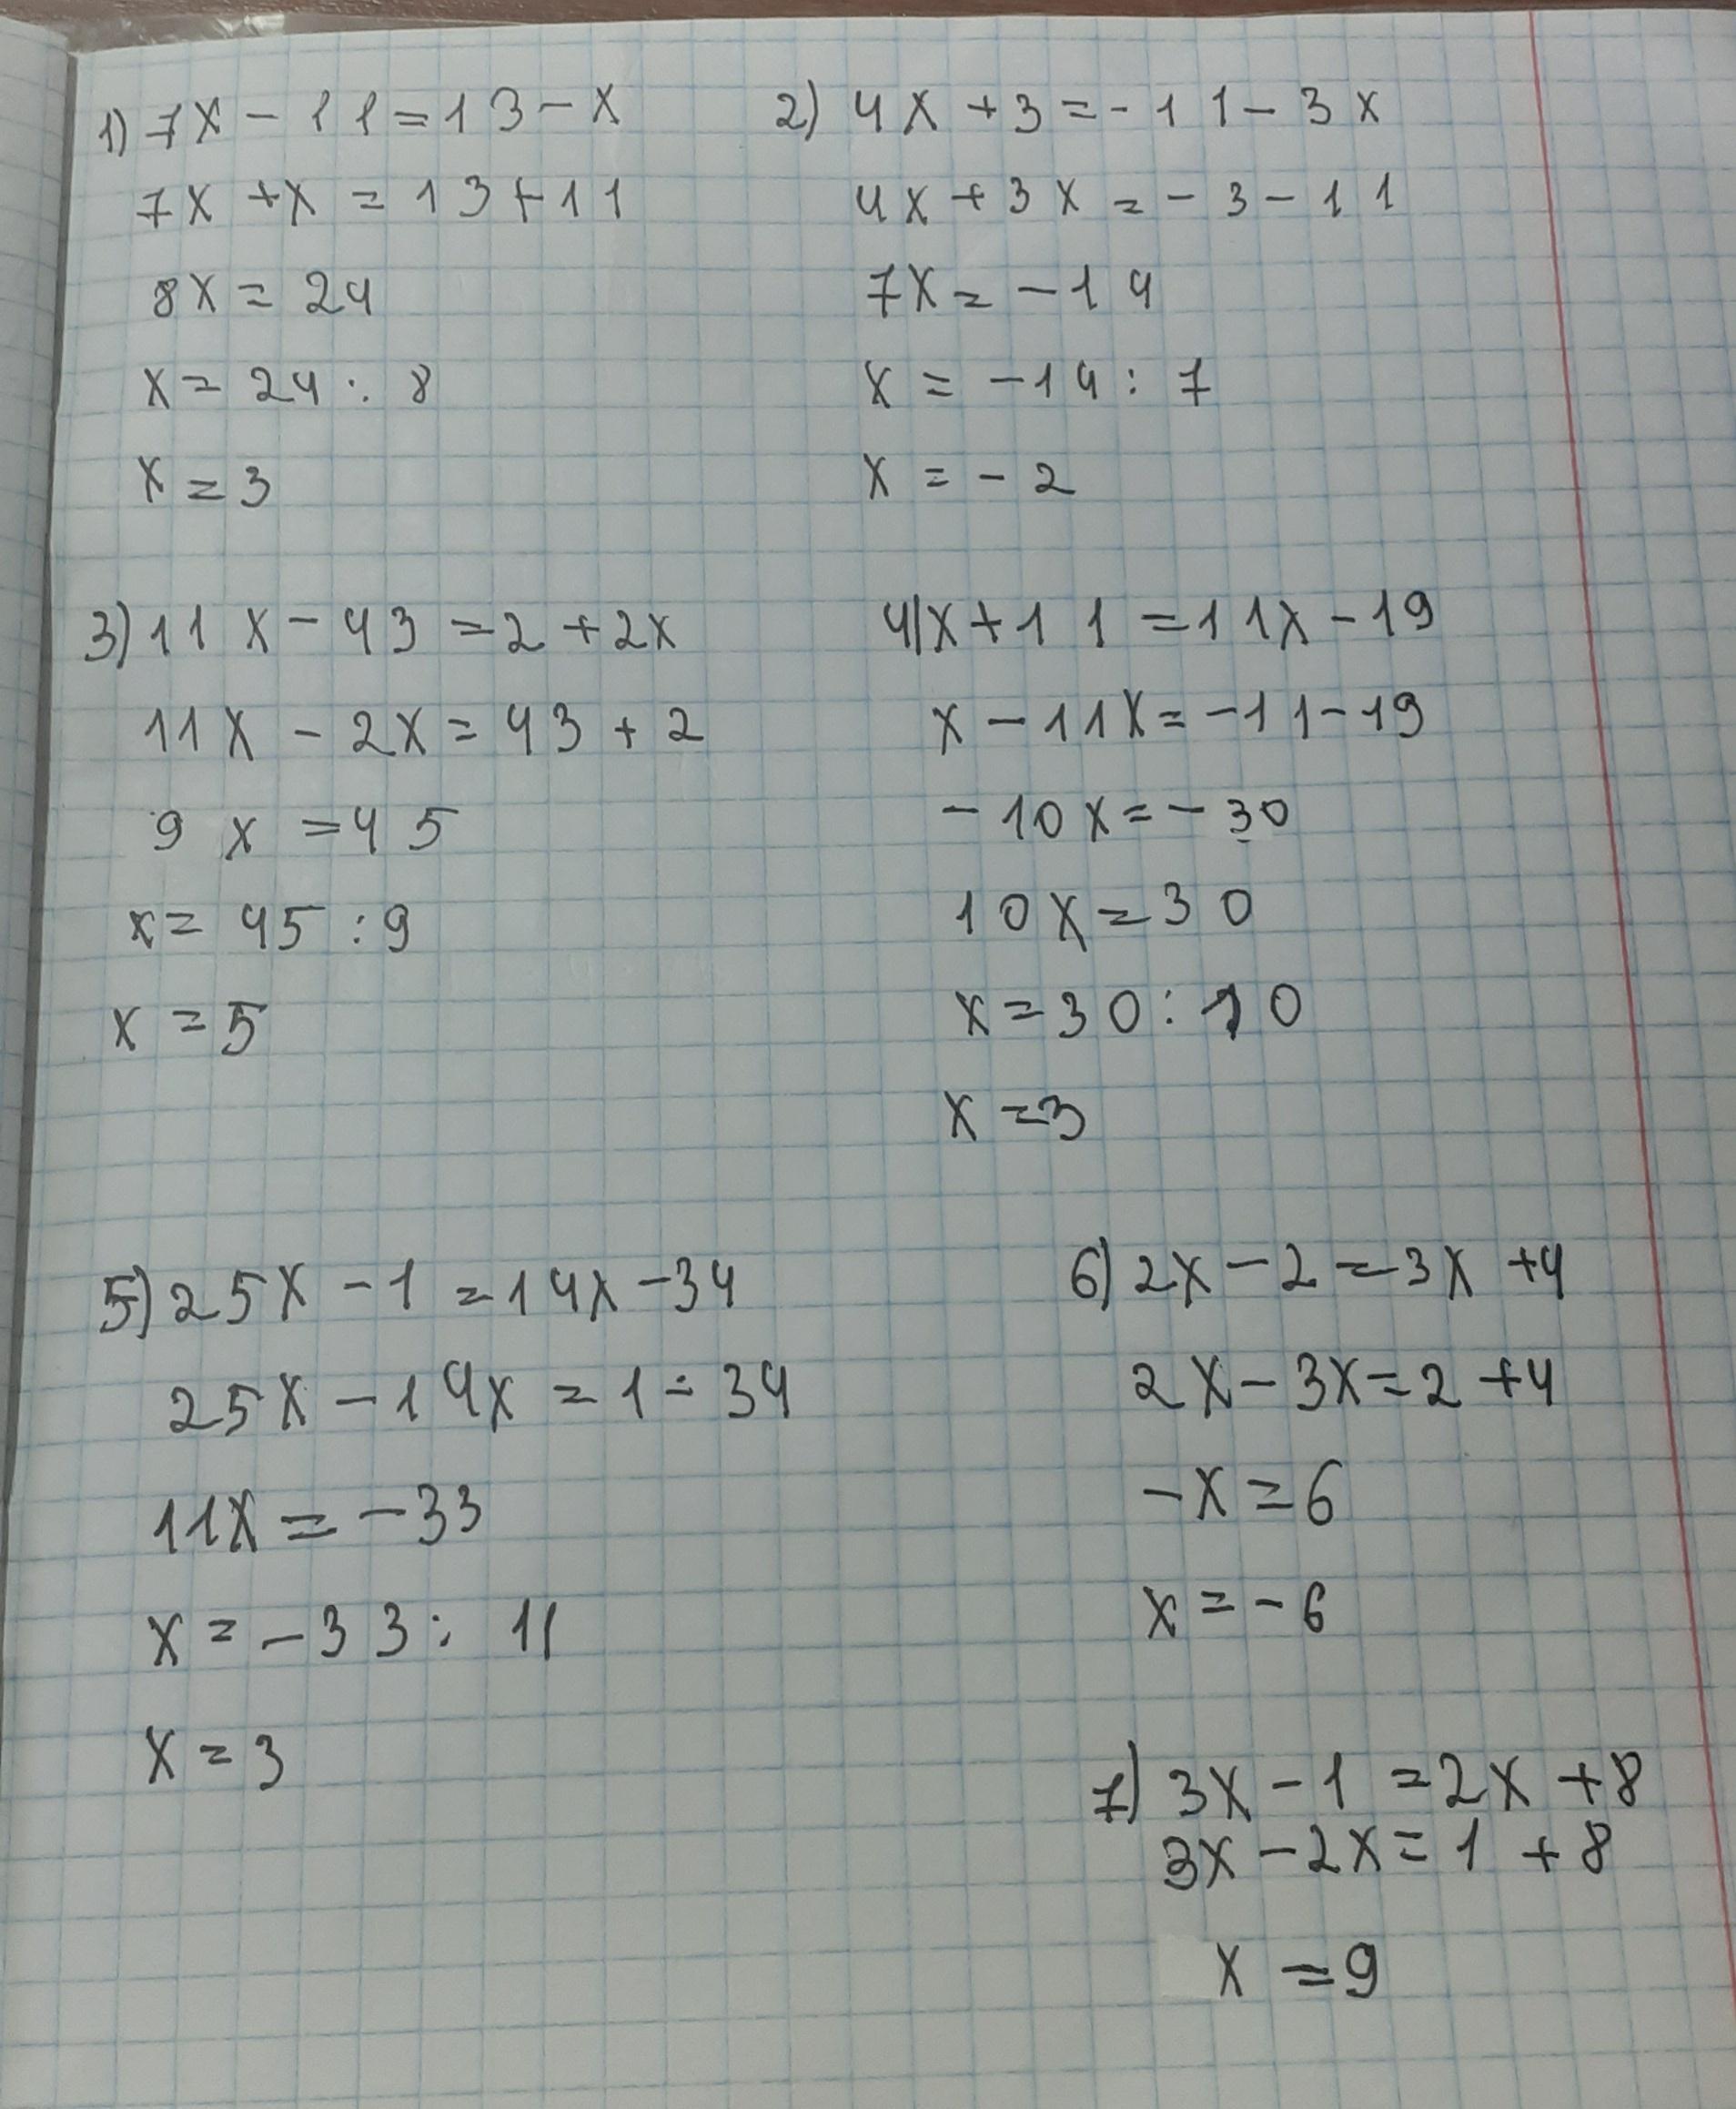 1) 7x - 11 = 13 - x
7x + x = 13 + 11
8x = 24
x = 24 : 8
x = 3
2) 4x + 3 = - 11 - 3x
4x + 3x = - 3 - 11
7x = - 14
x = - 14 : 7
x = - 2
3) 11x - 43 = 2 + 2x
11x - 2x = 43 + 2
9x = 45
x = 45 : 9
x = 5
4) x + 11 = 11x - 19
x - 11x = - 11 - 19
- 10x = - 30
10x = 30
x = 30 : 10
x = 3
5) 25x - 1 = 14x - 34
25x - 14x = 1 - 34
11x = - 33
x = - 33 : 11
x = 3
6) 2x - 2 = 3x + 4
2x - 3x = 2 + 4
- x = 6
x = - 6
7) 3x - 1 = 2x + 8
3x - 2x = 1 + 8
x = 9